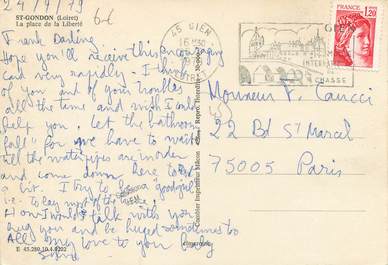 24/9/79
6-6
ST-GONDON (Loiret)
La place de la Liberté
Frank Darling,
Hope you'll receive this encouraging
card very rapidly. I think
of you and of your troubles
all the time and wish I could
help you. Let the bathroom
"fall" for we have to wait
till the waterpipes are in order
and come down here to rest
a bit. I try to be a "good girl"
i.e. to lay most of the
How I would talk with you
hug you and be huged sometimes to
All my love to you baby
E 45.280.10.4.0202
45 GIEN
16
LOIRET
GIEN
INTERNATIONAL
DE
CHASSE
FRANCE
1,20
Monsieur F. Caucci
22 Bd St Marcel
75005 Paris
Combier Imprimeur Mâcon